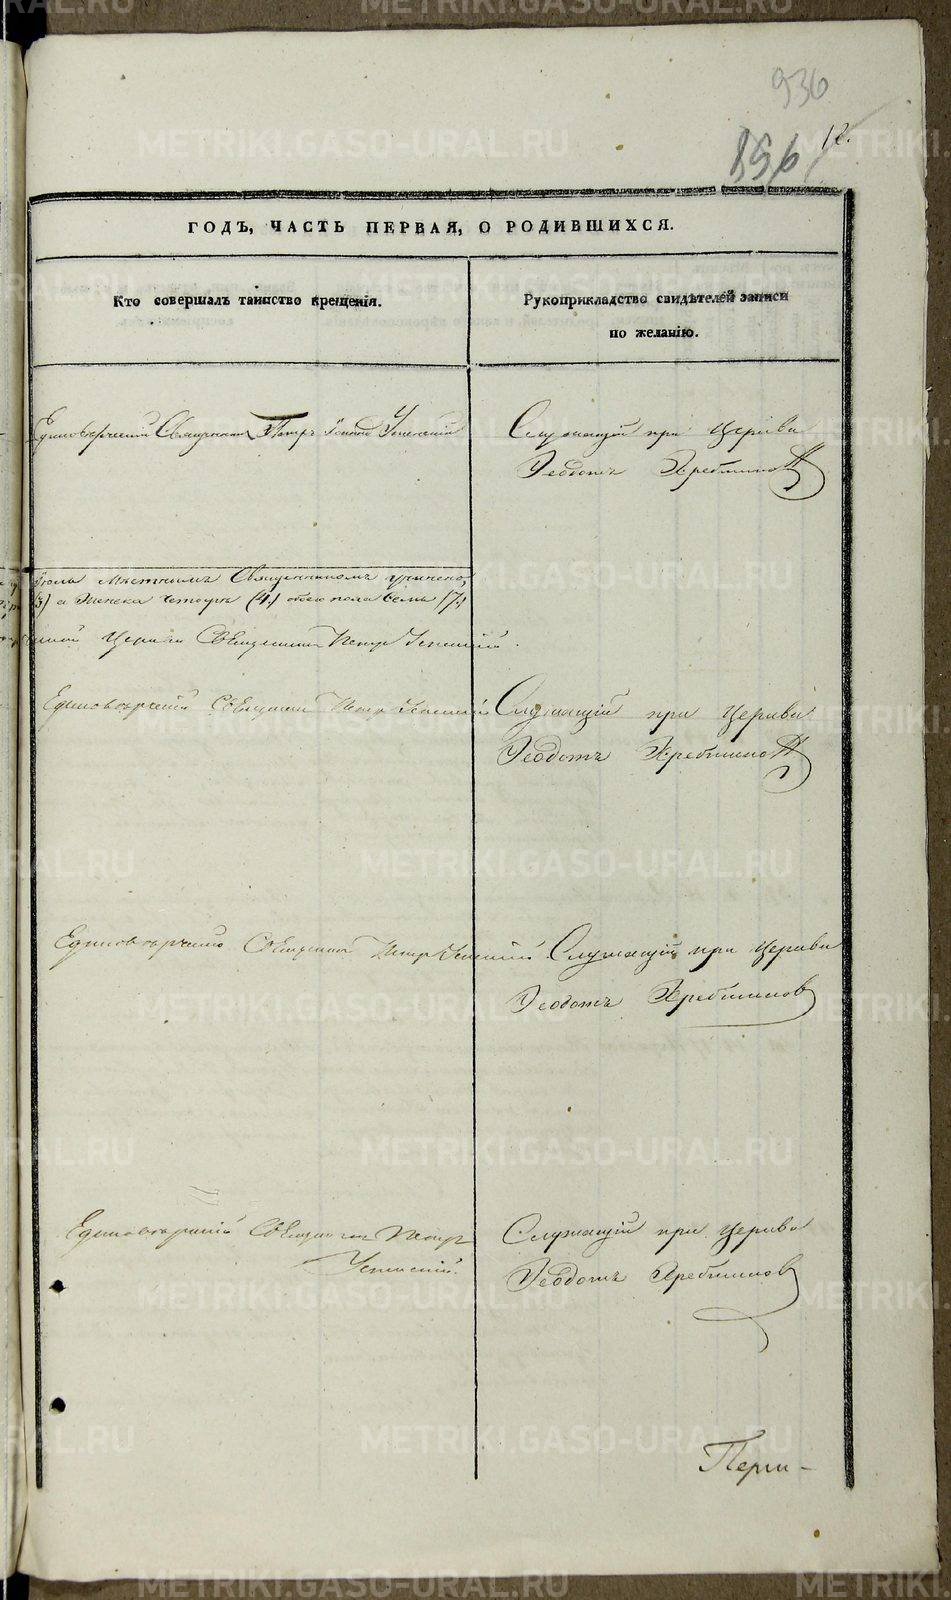 936
12.
958
ГОДЪ, ЧАСТЬ ПЕРВАЯ, О РОДИВШИХСЯ.
Кто совершалъ таинство крещенія.
Рукоприкладство свидѣтелей записи
по желанію.
Единовѣрческій Священникъ Петръ Успенскій
Служащій при Церкви
Ѳеодотъ
Іюль Мѣстнымъ Священникомъ
(3) а Женска четыре (4.) обоего пола Семь (7.)
Церкви Священникъ Петръ Успенскій.
Единовѣрческій Священникъ Петръ Успенскій
Служащій при Церкви
Ѳеодотъ
Единовѣрческій Священникъ Петръ Успенскій
Служащій при Церкви
Ѳеодотъ
Единовѣрческій Священникъ Петръ
Успенскій.
Служащій при Церкви
Ѳеодотъ
METRIKI.GASO-URAL.RU